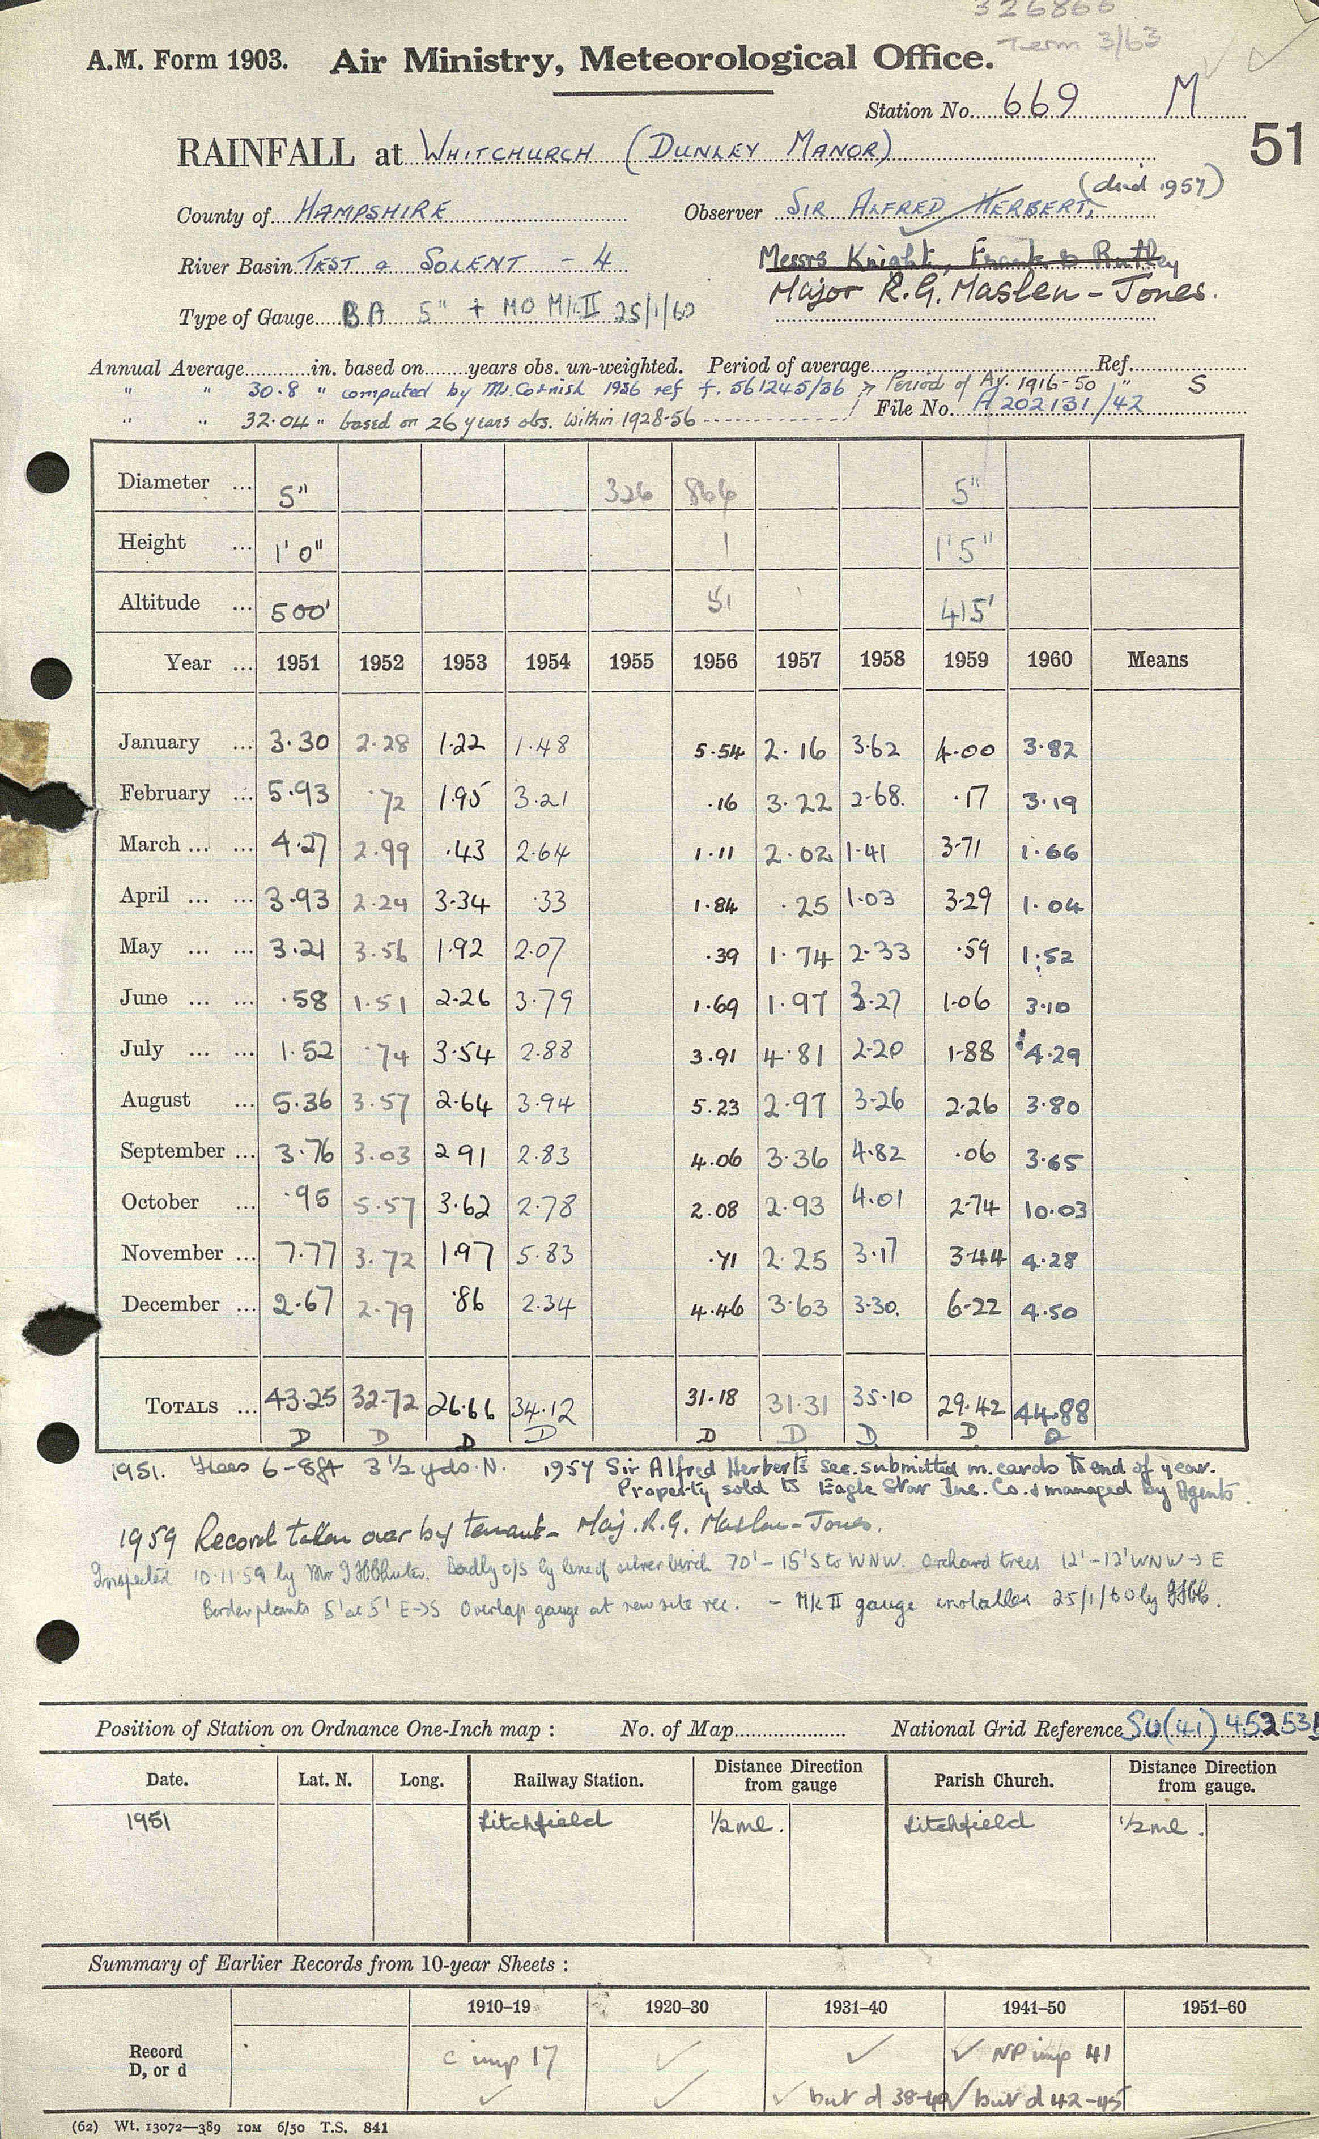 326866
Term 3/63
A.M. Form 1903. Air Ministry, Meteorological Office.
Station No. 669 M
51
RAINFALL at WHITCHURCH (DUNLEY MANOR)
(died 1957)
County of HAMPSHIRE Observer SIR ALFRED HERBERT.
River Basin TEST & SOLENT - 4 Messrs Knight, Frank & Rutley
Major R.G. Maslen-Jones.
Type of Gauge BA 5" + MO Mk II 25/1/60
Annual Average in. based on years obs. un-weighted. Period of average Ref.
" " 30.8 " computed by Mr. Cornish 1956 ref f. 561245/56 Period of Av. 1916-50 " S
File No. A 202131/42
" " 32.04 " based on 26 years obs. within 1928-56
Diameter ... 5" 326 866 5"
Height ... 1' 0" 1 1'5"
Altitude ... 500' 51 415'
Year ... 1951 1952 1953 1954 1955 1956 1957 1958 1959 1960 Means
January ... 3.30 2.28 1.22 1.48 5.54 2.16 3.62 4.00 3.82
February ... 5.93 .72 1.95 3.21 .16 3.22 2.68. .17 3.19
March ... ... 4.27 2.99 .43 2.64 1.11 2.02 1.41 3.71 1.66
April ... ... 3.93 2.24 3.34 .33 1.84 .25 1.03 3.29 1.04
May ... ... 3.21 3.56 1.92 2.07 .39 1.74 2.33 .59 1.52
June ... ... .58 1.51 2.26 3.79 1.69 1.97 3.27 1.06 3.10
July ... ... 1.52 .74 3.54 2.88 3.91 4.81 2.20 1.88 4.29
August ... 5.36 3.57 2.64 3.94 5.23 2.97 3.26 2.26 3.80
September ... 3.76 3.03 2.91 2.83 4.06 3.36 4.82 .06 3.65
October ... .95 5.57 3.62 2.78 2.08 2.93 4.01 2.74 10.03
November ... 7.77 3.72 1.97 5.83 .71 2.25 3.17 3.44 4.28
December ... 2.67 2.79 .86 2.34 4.46 3.63 3.30. 6.22 4.50
TOTALS ... 43.25 32.72 26.66 34.12 31.18 31.31 35.10 29.42 44.88
D D D D D D D D D
1951. Trees 6-8ft 3 1/2 yds. N. 1957 Sir Alfred Herbert's sec. submitted m. cards to end of year.
Property sold to Eagle Star Ins. Co. & managed by Agents.
1959 Record taken over by tenant - Maj. R.G. Maslen-Jones.
Inspected 10.11.59 by Mr Badly o/s by line of silver birch 70' - 15' S to WNW. Orchard trees 12' - 12' WNW → E
Border plants 5' at 5' E→S Overlap gauge at new site rec. - Mk II gauge installed 25/1/60 by
Position of Station on Ordnance One-Inch map : No. of Map National Grid Reference SU(41) 452531
Date. Lat. N. Long. Railway Station. Distance Direction from gauge Parish Church. Distance Direction from gauge.
1951 Litchfield 1/2 ml. Litchfield 1/2 ml.
Summary of Earlier Records from 10-year Sheets :
1910-19 1920-30 1931-40 1941-50 1951-60
Record D, or d c imp 17 ✓ ✓ ✓ NP imp 41
✓ ✓ ✓ but d 38-40 ✓ but d 42-45
(62) Wt. 13072—389 10M 6/50 T.S. 841